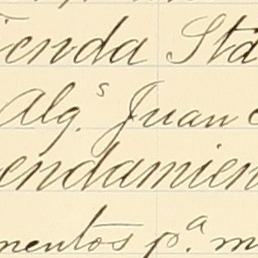 ienda Sta
Alg.s Juan
endamien
mentos p.a m